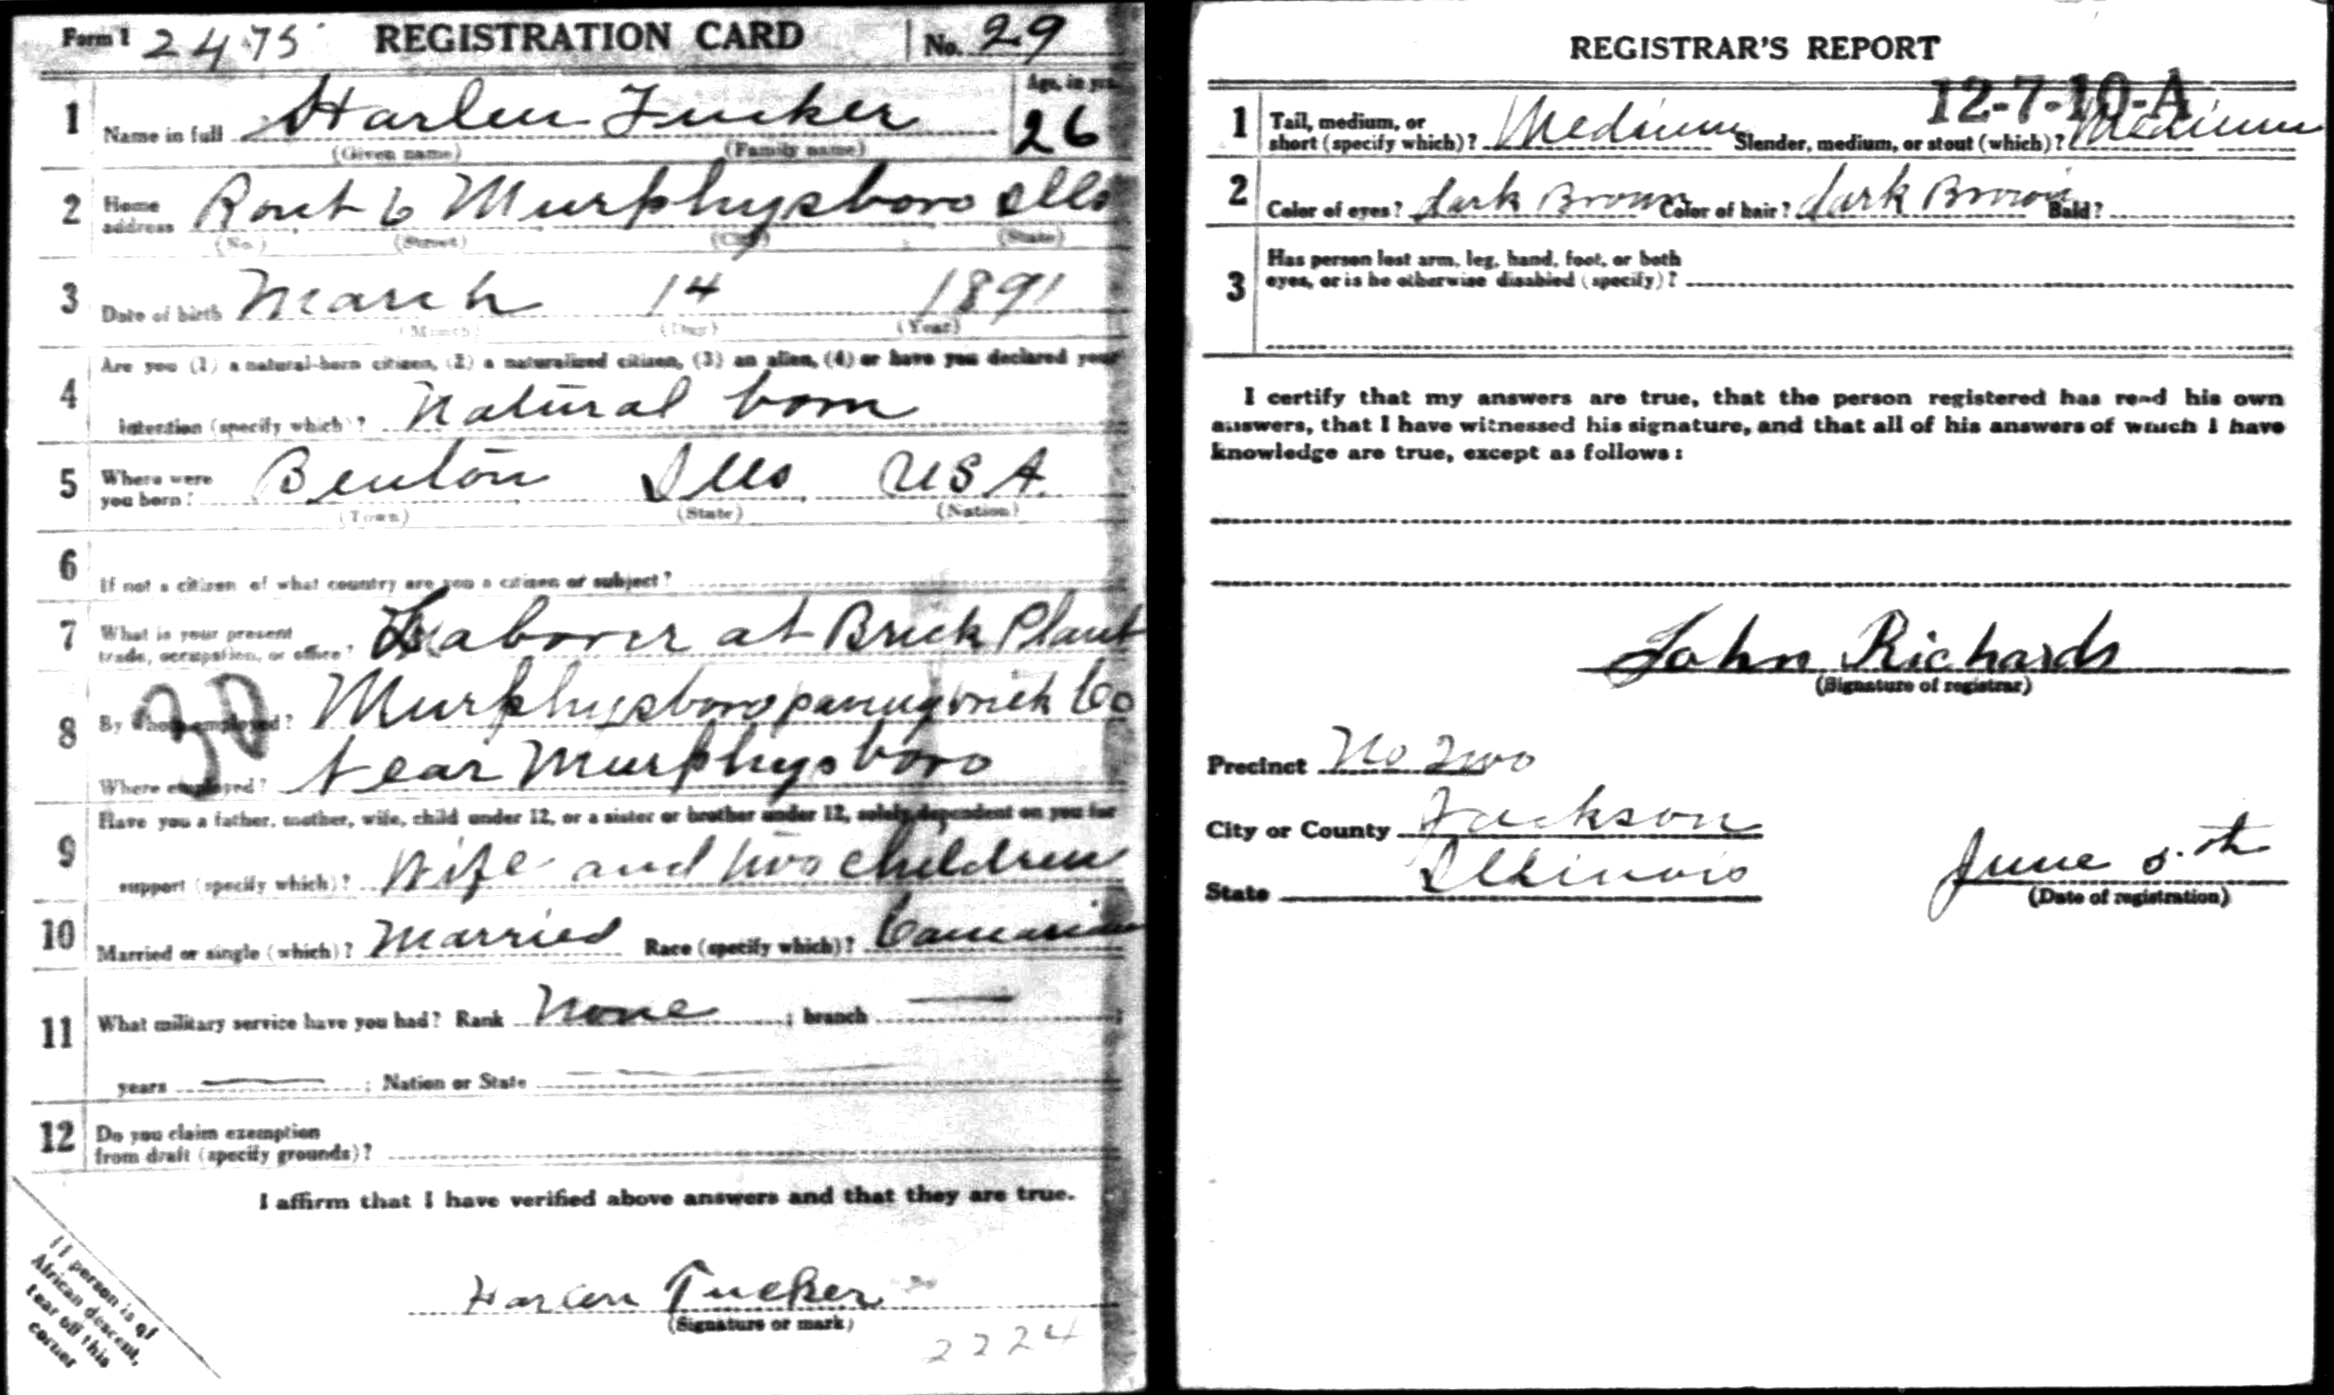 Form 1 2475 REGISTRATION CARD No. 29
Age, in yrs.
1 Name in full Harlen Tucker 26
(Given name) (Family name)
2 Home address Rout 6 Murphysboro Ills
(No.) (Street) (City) (State)
3 Date of birth March 14 1891
(Month) (Day) (Year)
Are you (1) a natural-born citizen, (2) a naturalized citizen, (3) an alien, (4) or have you declared your
4 intention (specify which)? Natural born
5 Where were you born? Benton Ills USA.
(Town) (State) (Nation)
6 If not a citizen of what country are you a citizen or subject?
7 What is your present trade, occupation, or office? Laborer at Brick Plant
8 By whom employed? Murphysboro paving brick Co
30
Where employed? Near Murphysboro
Have you a father, mother, wife, child under 12, or a sister or brother under 12, solely dependent on you for
9 support (specify which)? Wife and two children
10 Married or single (which)? Married Race (specify which)?
11 What military service have you had? Rank None ; branch —
years — ; Nation or State —
12 Do you claim exemption
from draft (specify grounds)?
I affirm that I have verified above answers and that they are true.
Harlen Tucker
(Signature or mark)
2224
If person is of
African descent,
tear off this
corner
REGISTRAR'S REPORT
12-7-10-A
1 Tall, medium, or
short (specify which)? Medium Slender, medium, or stout (which)? Medium
2 Color of eyes? dark Brown Color of hair? dark Brown Bald?
3 Has person lost arm, leg, hand, foot, or both
eyes, or is he otherwise disabled (specify)?
I certify that my answers are true, that the person registered has read his own
answers, that I have witnessed his signature, and that all of his answers of which I have
knowledge are true, except as follows:
John Richards
(Signature of registrar)
Precinct No Two
City or County Jackson
State Illinois
June 5.th
(Date of registration)